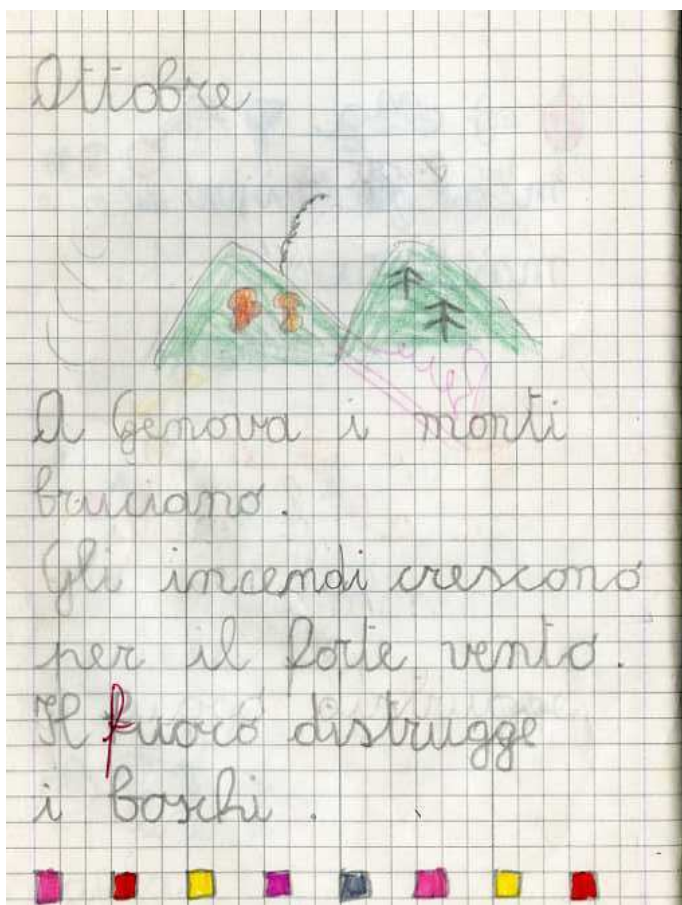 Ottobre
A Genova i monti
bruciano.
Gli incendi crescono
per il forte vento.
Il fuoco distrugge
i boschi.